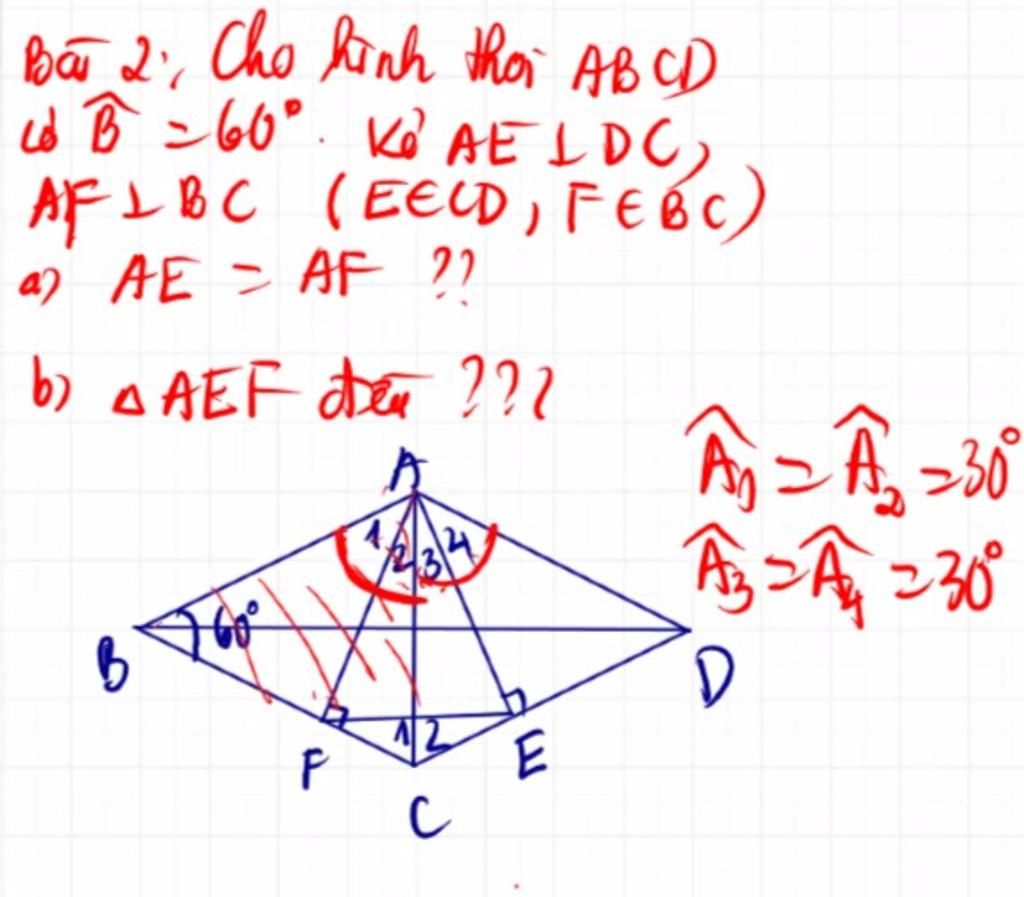 Bài 2: Cho hình thoi ABCD
có B̂ = 60°. Kẻ AE ⊥ DC,
AF ⊥ BC (E ∈ CD, F ∈ BC)
a) AE = AF ??
b) △AEF đều ???
Â₁ = Â₂ = 30°
Â₃ = Â₄ = 30°
A
1 2 3 4
B 60° D
F 1 2 E
C